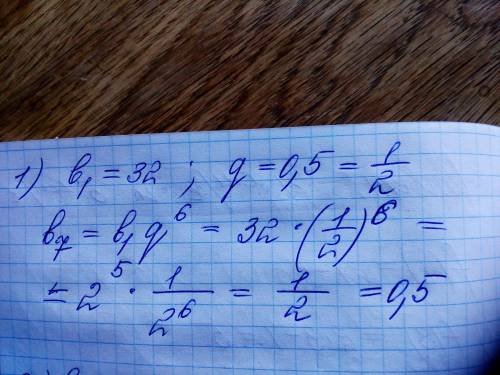 1) b₁ = 32 ; q = 0,5 = 1/2
b₇ = b₁ q⁶ = 32 · (1/2)⁶ =
= 2⁵ · 1/2⁶ = 1/2 = 0,5